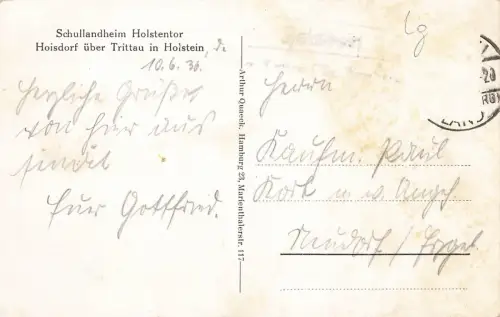 Schullandheim Holstentor
Hoisdorf über Trittau in Holstein, d.
10.6.36.
Herzliche Grüße
von hier aus
sendet
Eur Gottfried.
Arthur Quaeck, Hamburg 23, Marienthalerstr. 117
Herrn
Kaufm. Paul
Kort u. w. Angeh.
Neudorf / Erzgeb.